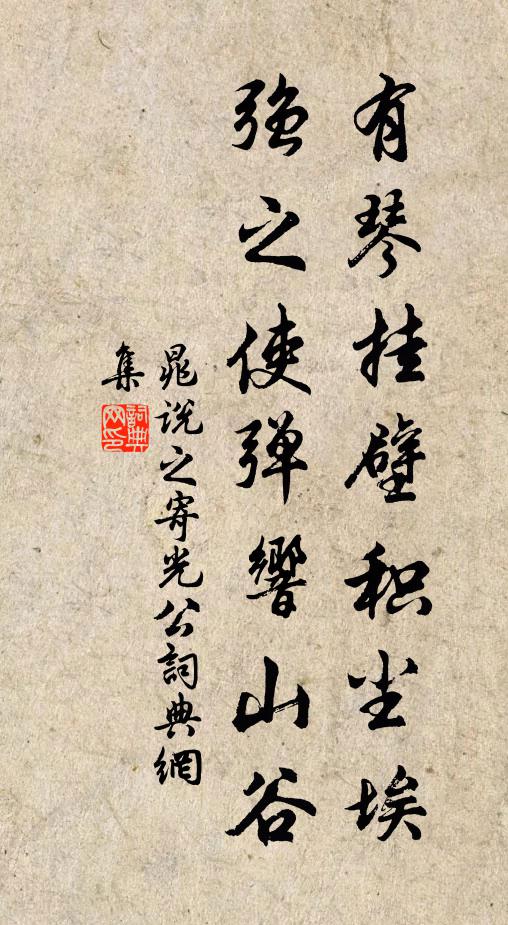 有琴挂壁积尘埃
强之使弹響山谷
晁说之寄光公詞典網
集
詞典
网印